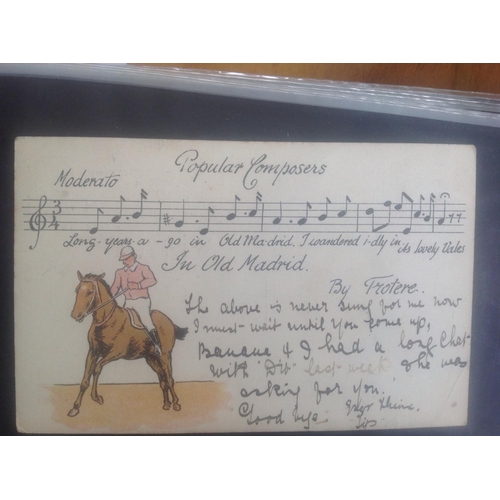 Popular Composers
Moderato
3
4
Long-years-a-go in Old Ma-drid, I wandered i-dly in its lovely Vales
In Old Madrid.
By Trotere.
The above is never sung for me now
I must wait until you come up,
& I had a long Chat
with "Dit" last week she was
asking for you.
Good bye Ever Thine,